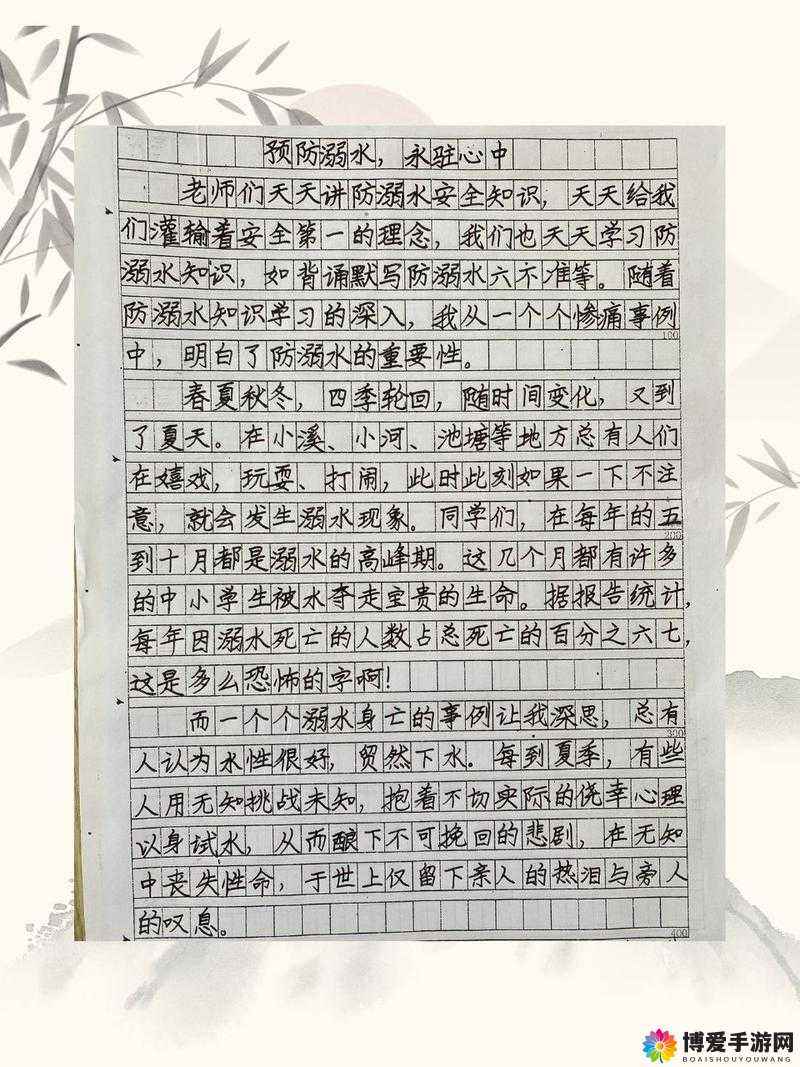 预防溺水，永驻心中
老师们天天讲防溺水安全知识，天天给我
们灌输着安全第一的理念，我们也天天学习防
溺水知识，如背诵默写防溺水六不准等。随着
防溺水知识学习的深入，我从一个个惨痛事例
100
中，明白了防溺水的重要性。
春夏秋冬，四季轮回，随时间变化，又到
了夏天。在小溪、小河、池塘等地方总有人们
在嬉戏，玩耍、打闹，此时此刻如果一下不注
意，就会发生溺水现象。同学们，在每年的五
200
到十月都是溺水的高峰期。这几个月都有许多
的中小学生被水夺走宝贵的生命。据报告统计，
每年因溺水死亡的人数占总死亡的百分之六七，
这是多么恐怖的字啊！
而一个个溺水身亡的事例让我深思，总有
300
人认为水性很好，贸然下水。每到夏季，有些
人用无知挑战未知，抱着不切实际的侥幸心理
以身试水，从而酿下不可挽回的悲剧，在无知
中丧失性命，于世上仅留下亲人的热泪与旁人
的叹息。
400
博爱手游网
BOAISHOUYOUWANG